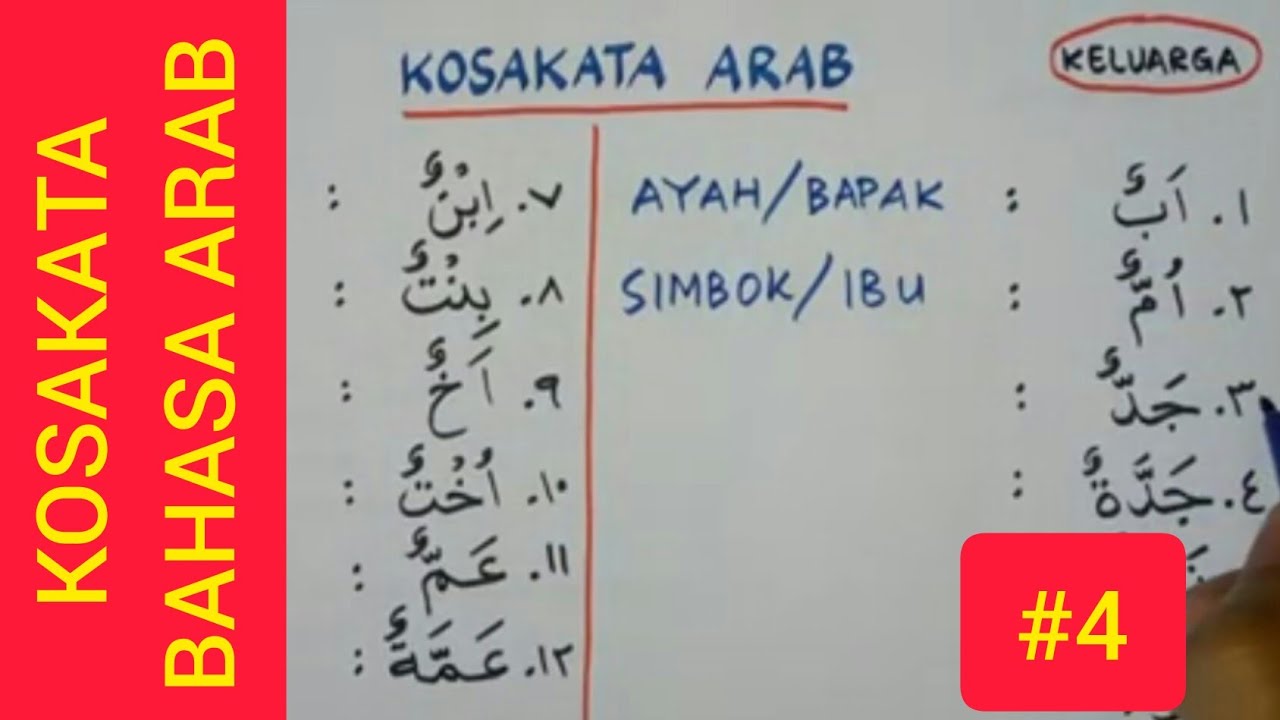 KOSAKATA
BAHASA ARAB
KOSAKATA ARAB
KELUARGA
١. اَبٌ : AYAH/BAPAK
٢. اُمٌّ : SIMBOK/IBU
٣. جَدٌّ :
٤. جَدَّةٌ :
٧. اِبْنٌ :
٨. بِنْتٌ :
٩. اَخٌ :
١٠. اُخْتٌ :
١١. عَمٌّ :
١٢. عَمَّةٌ :
#4